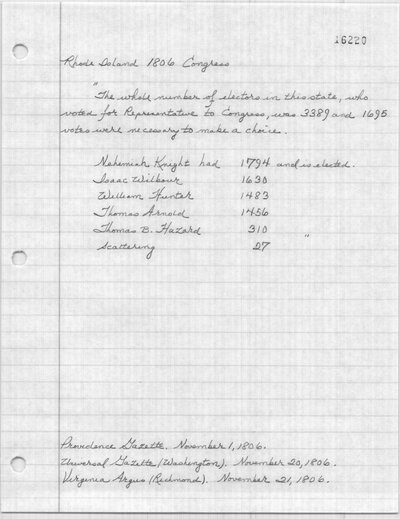 16220
Rhode Island 1806 Congress
"The whole number of electors in this state, who
voted for Representative to Congress, was 3389 and 1695
votes were necessary to make a choice.
Nehemiah Knight had 1794 and is elected.
Isaac Wilbour 1630
William Hunter 1483
Thomas Arnold 1456
Thomas B. Hazard 310
Scattering 27 "
Providence Gazette. November 1, 1806.
Universal Gazette (Washington). November 20, 1806.
Virginia Argus (Richmond). November 21, 1806.